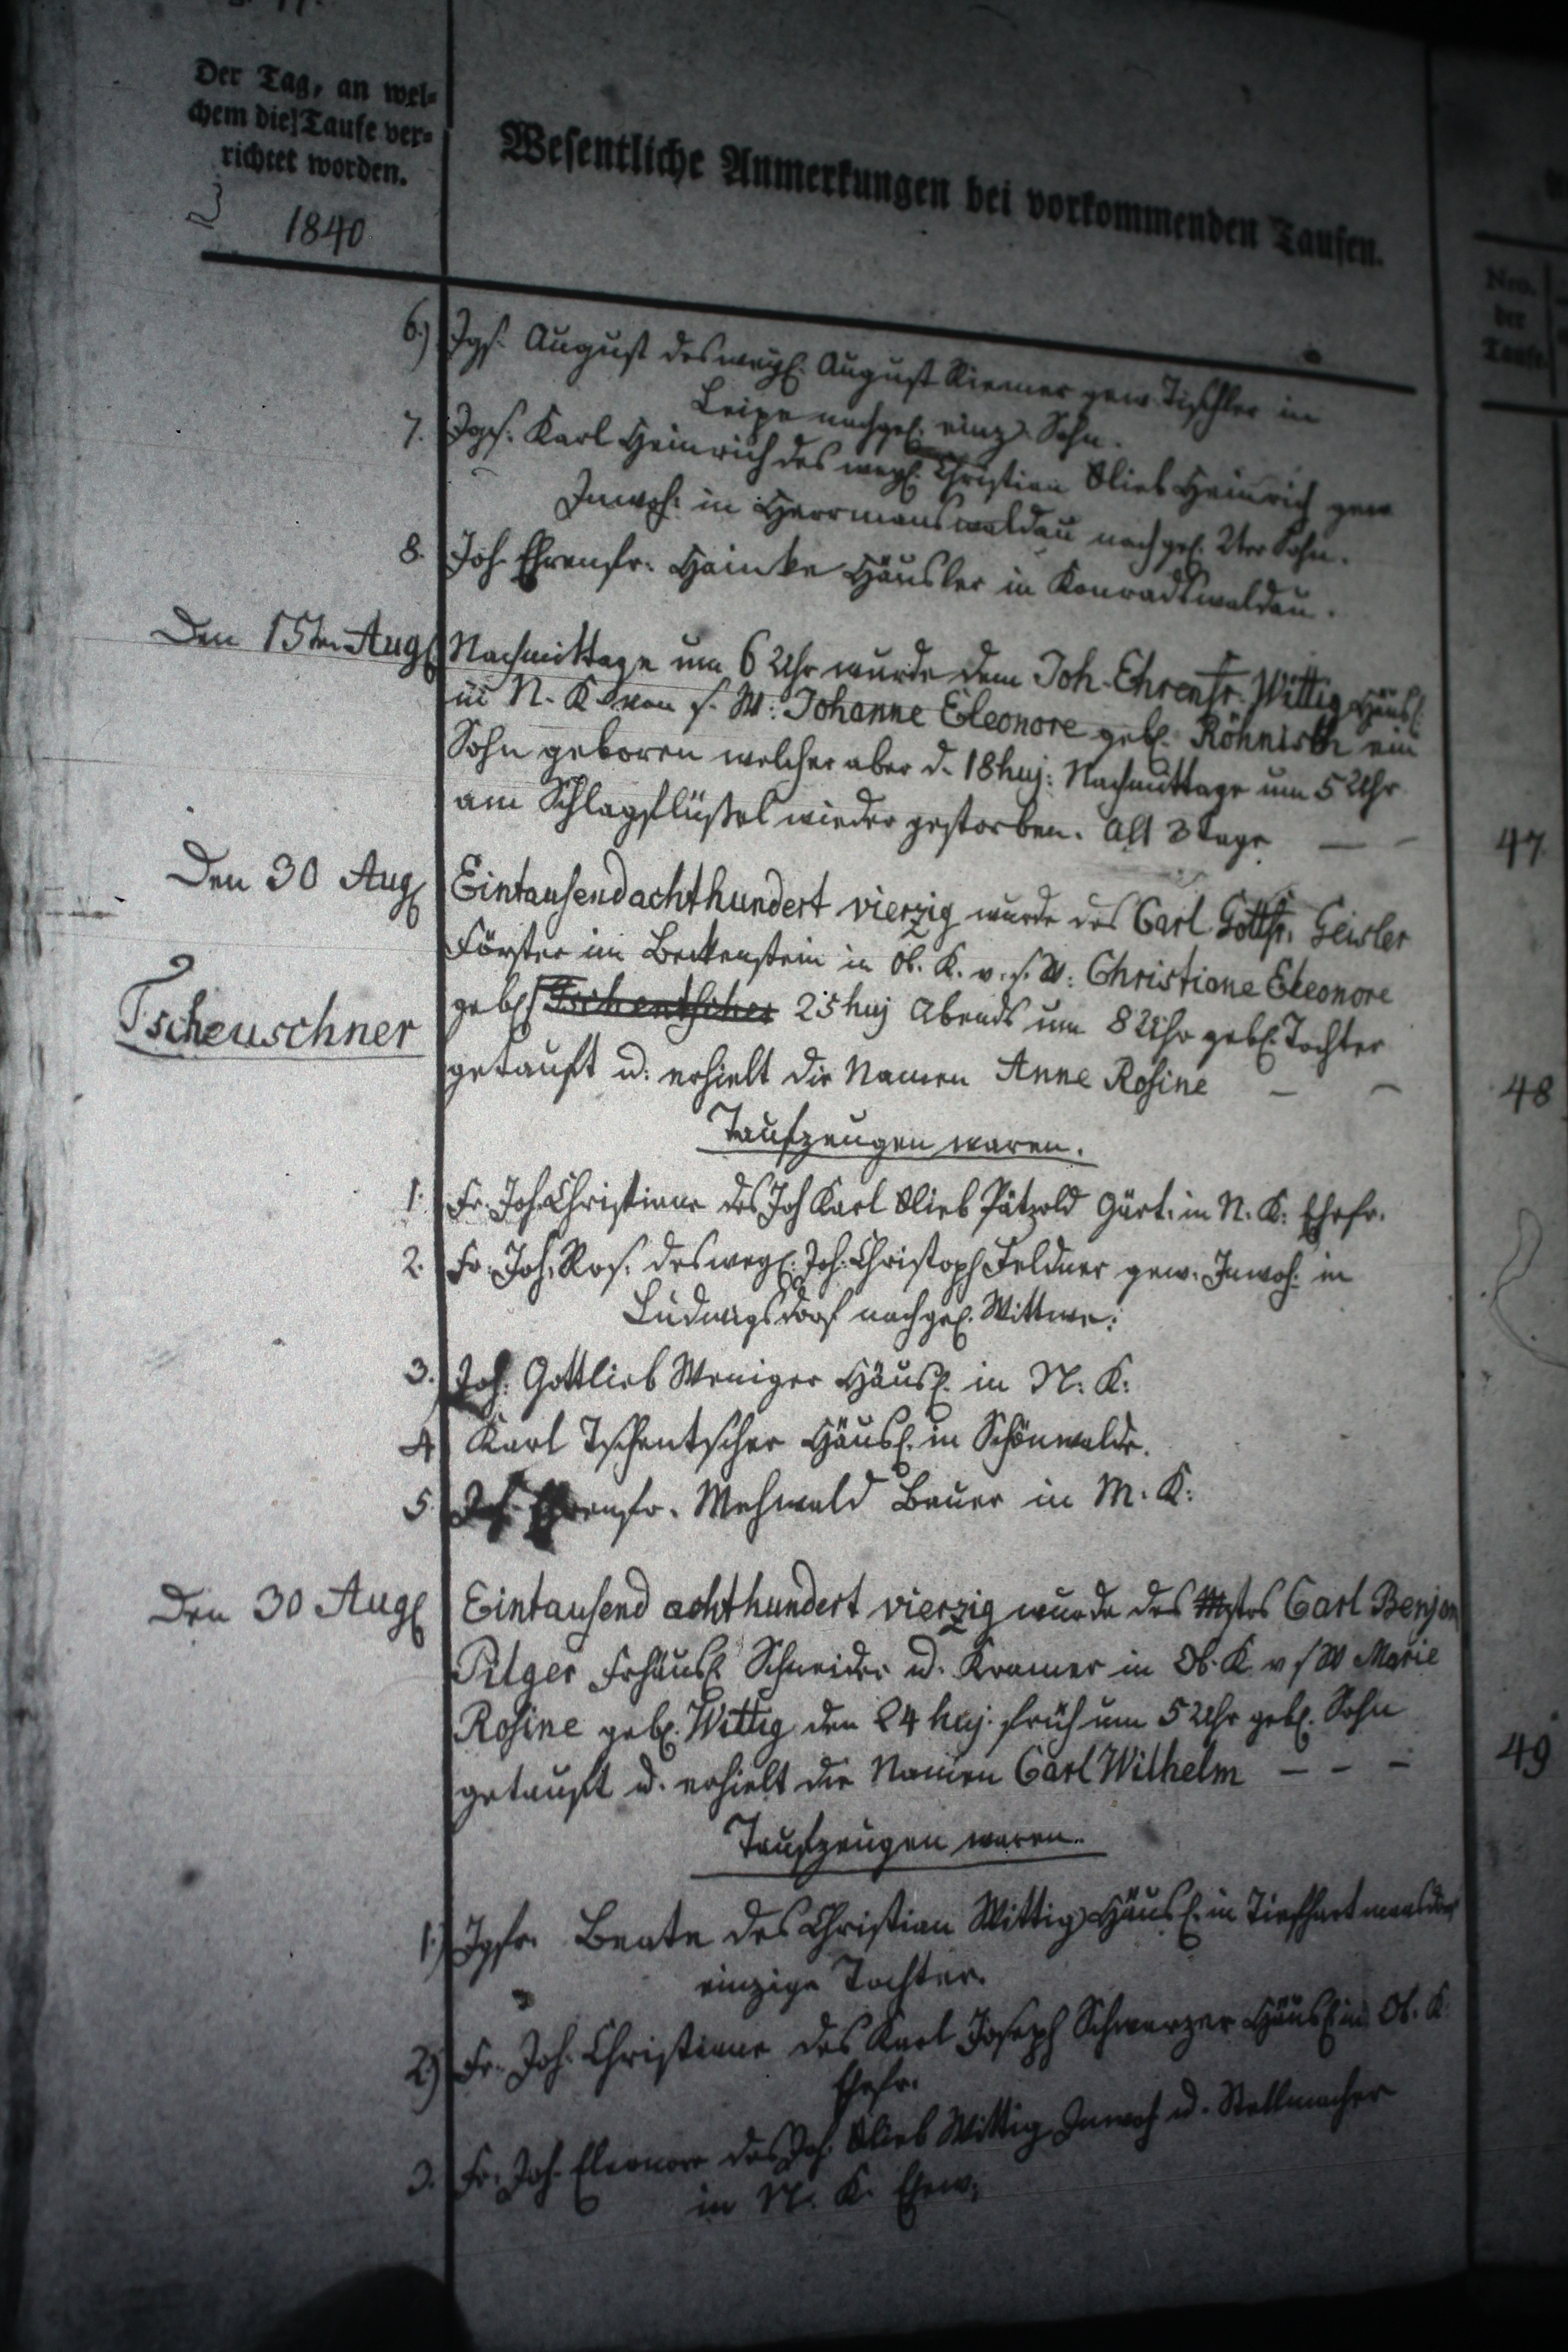 Der Tag, an wel-
chem die Taufe ver-
richtet worden.
1840
Wesentliche Anmerkungen bei vorkommenden Taufen.
Nro.
der
Taufe.
6.) Jgs. August des weyl. August Riemer gew. Tischler in
Leipe nachgel. einz. Sohn.
7. Jgs. Karl Heinrich des weyl. Christian Glieb Heinrich gew.
Inwoh. in Herrmanswaldau nachgel. 2ter Sohn.
8. Joh. Ehrenfr. Hainke Häusler in Konradswaldau.
Den 15ten Aug.
Nachmittage um 6 Uhr wurde dem Joh. Ehrenfr. Wittig Häusl.
in N. K. von s. W: Johanne Eleonore geb. Röhnisch ein
Sohn geboren welcher aber d. 18 huj: Nachmittage um 5 Uhr
am Schlagflüßel wieder gestorben. Alt 3 Tage — - 47
Den 30 Aug.
Eintausendachthundert vierzig wurde des Carl Gottfr. Geisler
Förster im Beckenstein in Ob. K. v. s. W: Christiane Eleonore
Tscheuschner
geb. Tschentscher 25 huj Abends um 8 Uhr geb. Tochter
getauft u. erhielt die Namen Anne Rosine - - 48
Taufzeugen waren.
1. Fr. Joh. Christiane des Joh Karl Glieb Pätzold Gärt. in N. K: Ehefr.
2. Fr. Joh. Ros. des weyl. Joh. Christoph Feldner gew. Inwoh. in
Ludwigsdorf nachgel. Wittwe:
3. Joh. Gottlieb Weniger Häusl. in N. K:
4 Karl Tschentscher Häusl. in Schönwalde.
5. Joh. Ehrenfr. Mehwald Bauer in M. K:
Den 30 Aug.
Eintausend achthundert vierzig wurde des Mstrs Carl Benjam
Pilger Frhäusl. Schneider u. Kramer in Ob. K v s W Marie
Rosine geb. Wittig den 24 huj. früh um 5 Uhr geb. Sohn
getauft u. erhielt die Namen Carl Wilhelm - - - 49
Taufzeugen waren.
1.) Jgfr. Beate des Christian Wittig Häusl. in Tiefhartmansdorf
einzige Tochter.
2.) Fr. Joh. Christiane des Karl Joseph Schwarzer Häusl. in Ob. K.
Ehefr.
3. Fr. Joh. Eleonore des Joh. Glieb Wittig Inwoh u. Stellmacher
in N. K. Ehew.